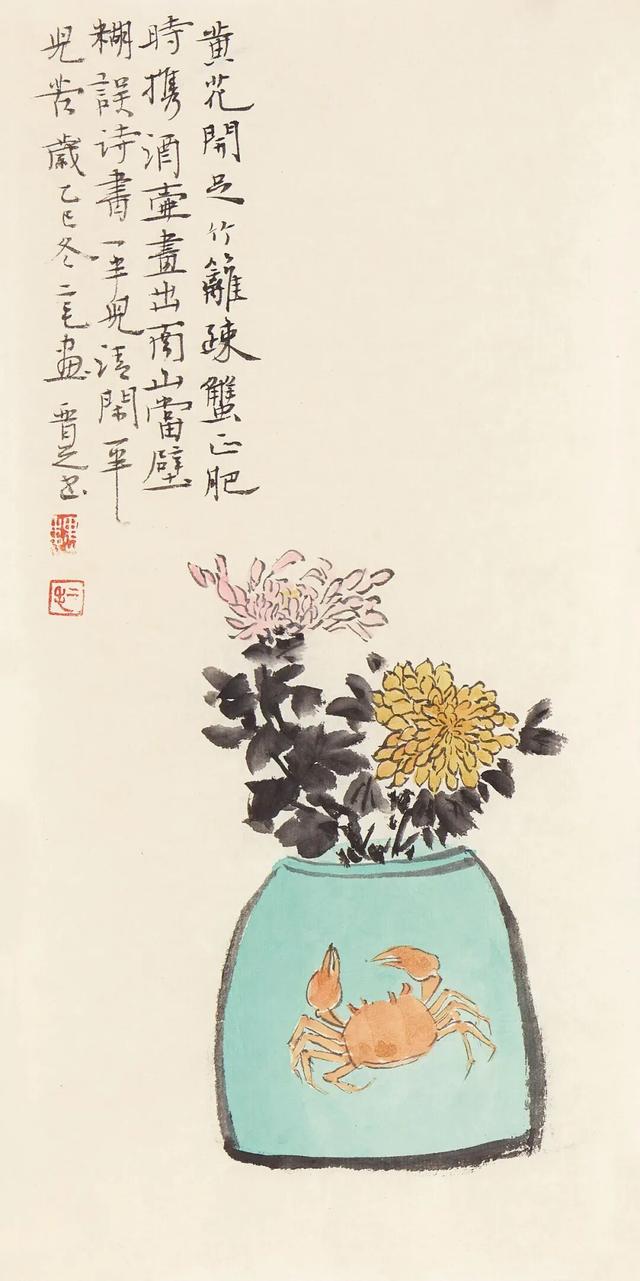 黄花開足竹籬疎蟹正肥
時携酒壺畫出南山當壁
糊誤诗書一半兒清閑一半
兒苦歲乙巳冬二毛畫晋之书
二毛